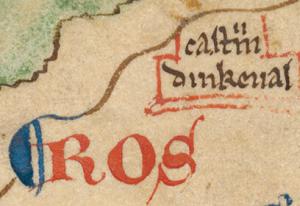 castrū
dinkeual
ROS